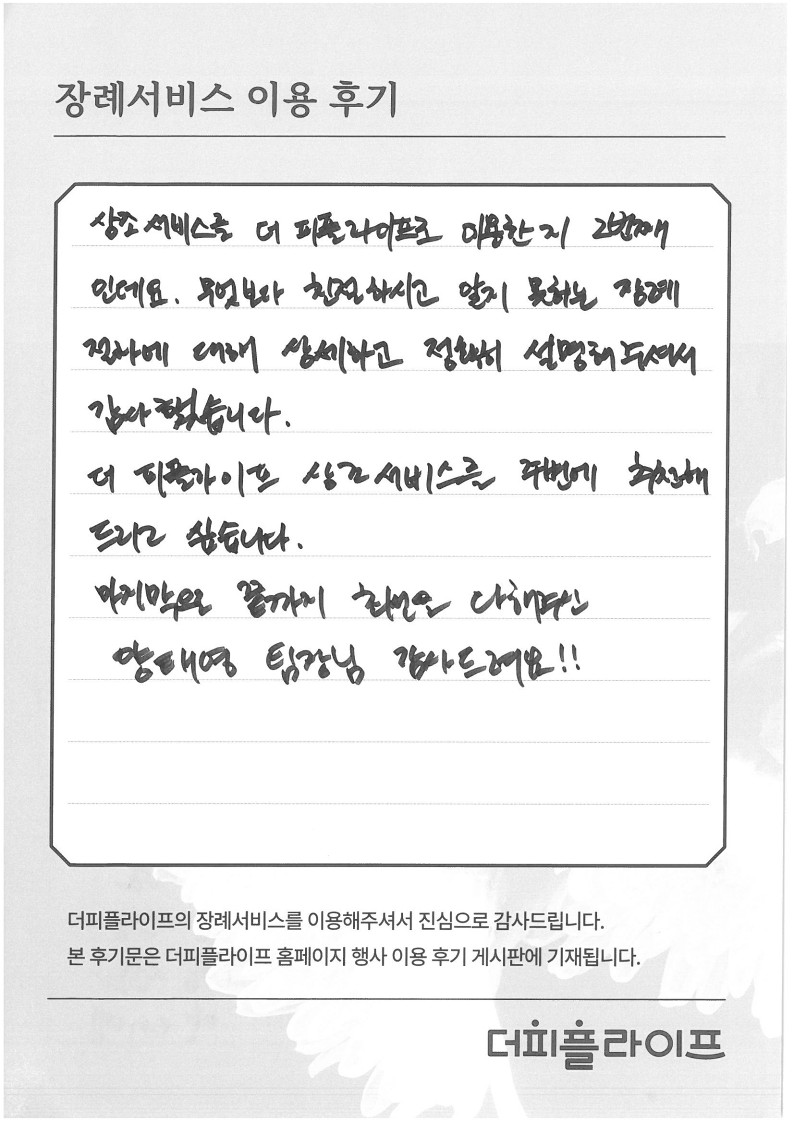 장례서비스 이용 후기
상조 서비스를 더 피플라이프로 이용한지 2번째
인데요. 무엇보다 친절하시고 알지 못하는 장례
절차에 대해 상세하고 정확히 설명해주셔서
감사했습니다.
더 피플라이프 상조서비스를 주변에 추천해
드리고 싶습니다.
마지막으로 끝까지 최선을 다해주신
양태영 팀장님 감사드려요!!
더피플라이프의 장례서비스를 이용해주셔서 진심으로 감사드립니다.
본 후기문은 더피플라이프 홈페이지 행사 이용 후기 게시판에 기재됩니다.
더피플라이프